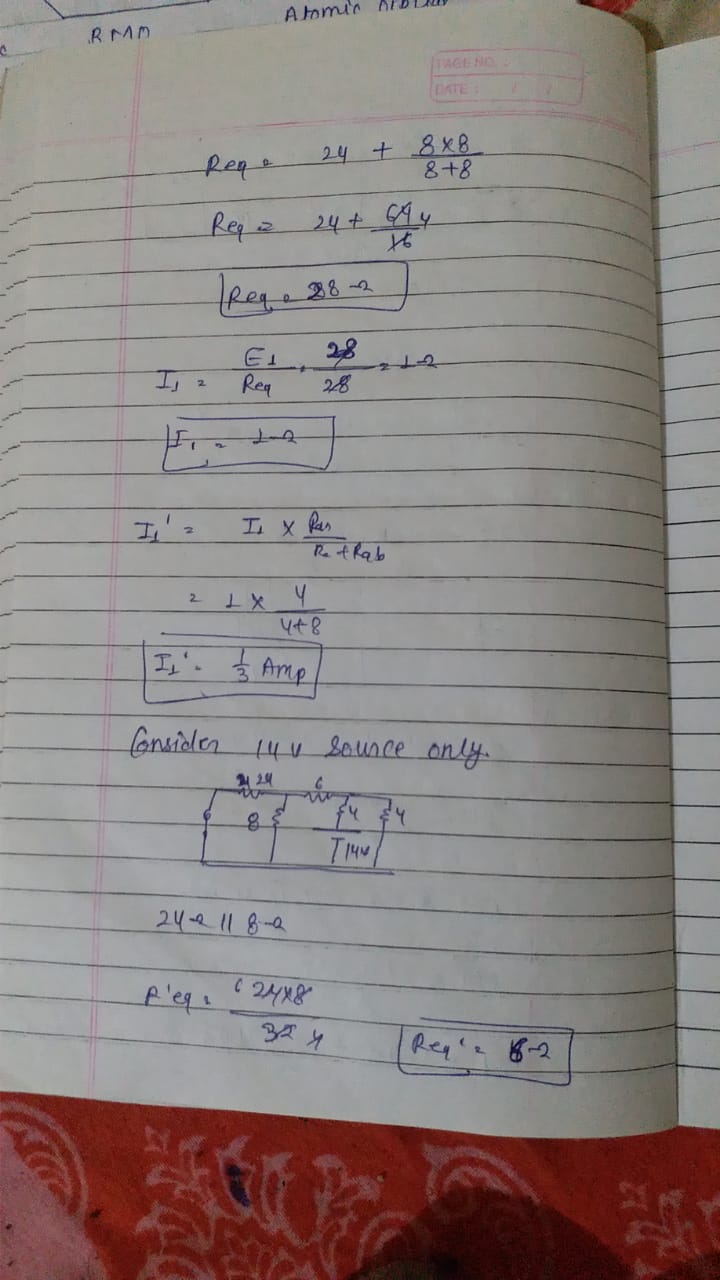 RMM
Atomic Orbital
PAGE NO. :
DATE : / /
Req = 24 + 8×8 / 8+8
Req = 24 + 64 4 / 16
Req = 28 Ω
I1 = E1 / Req = 28 / 28 = 1 Ω
I1 = 1 Ω
I1' = I1 ×
= 1 × 4 / 4+8
I1' = 1/3 Amp
Consider 14 v Source only.
24 6
8 4 4
14v
24 Ω || 8 Ω
R'eq = 6 24×8 / 32 4
Req' = 6 Ω